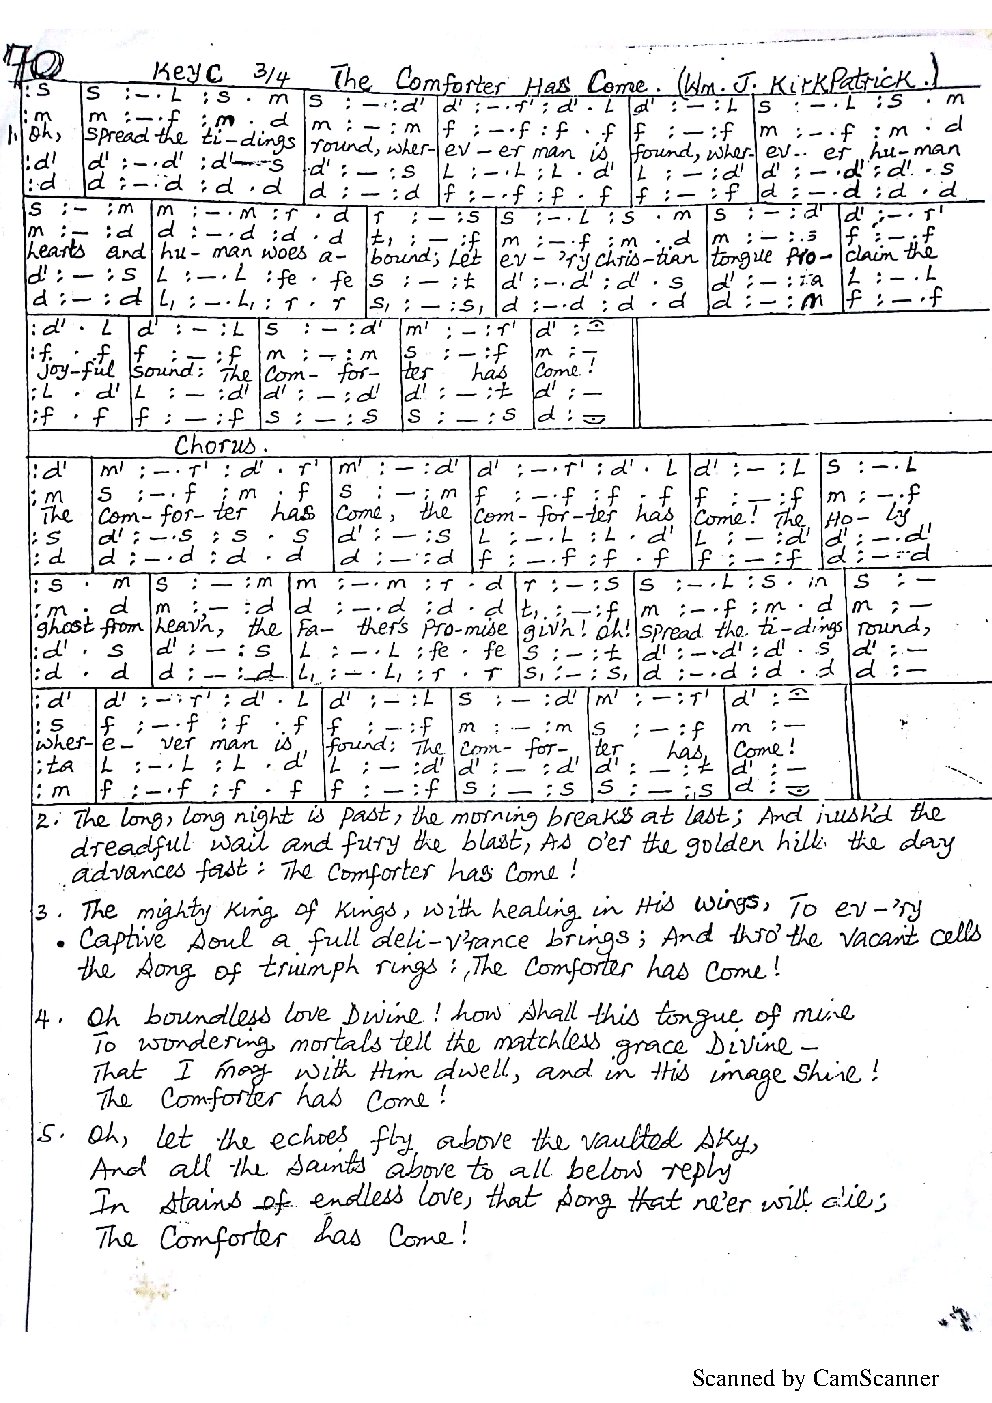 70
Key C 3/4 The Comforter Has Come. (Wm. J. KirkPatrick.)
:s | s :–·L :s·m | s :–:d' | d' :–·r' :d'·L | d' :–:L | s :–·L :s·m
:m | m :–·f :m·d | m :–:m | f :–·f :f·f | f :–:f | m :–·f :m·d
1. Oh, spread the ti-dings round, wher- ev-er man is found, wher- ev-er hu-man
:d' | d' :–·d' :d'–s | d' :–:s | L :–·L :L·d' | L :–:d' | d' :–·d' :d'·s
:d | d :–·d :d·d | d :–:d | f :–·f :f·f | f :–:f | d :–·d :d·d
s :–:m | m :–·m :r·d | r :–:s | s :–·L :s·m | s :–:d' | d' :–·r'
m :–:d | d :–·d :d·d | t, :–:f | m :–·f :m·d | m :–:s | f :–·f
hearts and hu-man woes a-bound; Let ev-'ry chris-tian tongue Pro-claim the
d' :–:s | L :–·L :fe·fe | s :–:t | d' :–·d' :d'·s | d' :–:ta | L :–·L
d :–:d | L, :–·L, :r·r | s, :–:s, | d :–·d :d·d | d :–:m | f :–·f
:d'·L | d' :–:L | s :–:d' | m' :–:r' | d' :–
:f·f | f :–:f | m :–:m | s :–:f | m :–
Joy-ful sound: The Com-for-ter has Come!
:L·d' | L :–:d' | d' :–:d' | d' :–:t | d' :–
:f·f | f :–:f | s :–:s | s :–:s | d :–
Chorus.
:d' | m' :–·r' :d'·r' | m' :–:d' | d' :–·r' :d'·L | d' :–:L | s :–·L
:m | s :–·f :m·f | s :–:m | f :–·f :f·f | f :–:f | m :–·f
The Com-for-ter has Come, the Com-for-ter has Come! The Ho-ly
:s | d' :–·s :s·s | d' :–:s | L :–·L :L·d' | L :–:d' | d' :–·d'
:d | d :–·d :d·d | d :–:d | f :–·f :f·f | f :–:f | d :–·d
:s·m | s :–:m | m :–·m :r·d | r :–:s | s :–·L :s·m | s :–
:m·d | m :–:d | d :–·d :d·d | t, :–:f | m :–·f :m·d | m :–
ghost from heav'n, the Fa-thers Pro-mise giv'n! oh! spread the ti-dings round,
:d'·s | d' :–:s | L :–·L :fe·fe | s :–:t | d' :–·d' :d'·s | d' :–
:d·d | d :–:d | L, :–·L, :r·r | s, :–:s, | d :–·d :d·d | d :–
:d' | d' :–·r' :d'·L | d' :–:L | s :–:d' | m' :–:r' | d' :–
:s | f :–·f :f·f | f :–:f | m :–:m | s :–:f | m :–
wher-e-ver man is found: The Com-for-ter has Come!
:ta | L :–·L :L·d' | L :–:d' | d' :–:d' | d' :–:t | d' :–
:m | f :–·f :f·f | f :–:f | s :–:s | s :–:s | d :–
2. The long, long night is Past, the morning breaks at last; And hush'd the
dreadful wail and fury the blast, As o'er the golden hills the day
advances fast: The Comforter has Come!
3. The mighty King of Kings, with healing in His wings, To ev-'ry
Captive Soul a full deli-v'rance brings; And thro' the vacant cells
the Song of triumph rings: The Comforter has Come!
4. Oh boundless love Divine! how shall this tongue of mine
To wondering mortals tell the matchless grace Divine –
That I may with Him dwell, and in His image shine!
The Comforter has Come!
5. Oh, let the echoes fly above the vaulted Sky,
And all the Saints above to all below reply
In Stains of endless love, that Song that ne'er will die;
The Comforter has Come!
Scanned by CamScanner